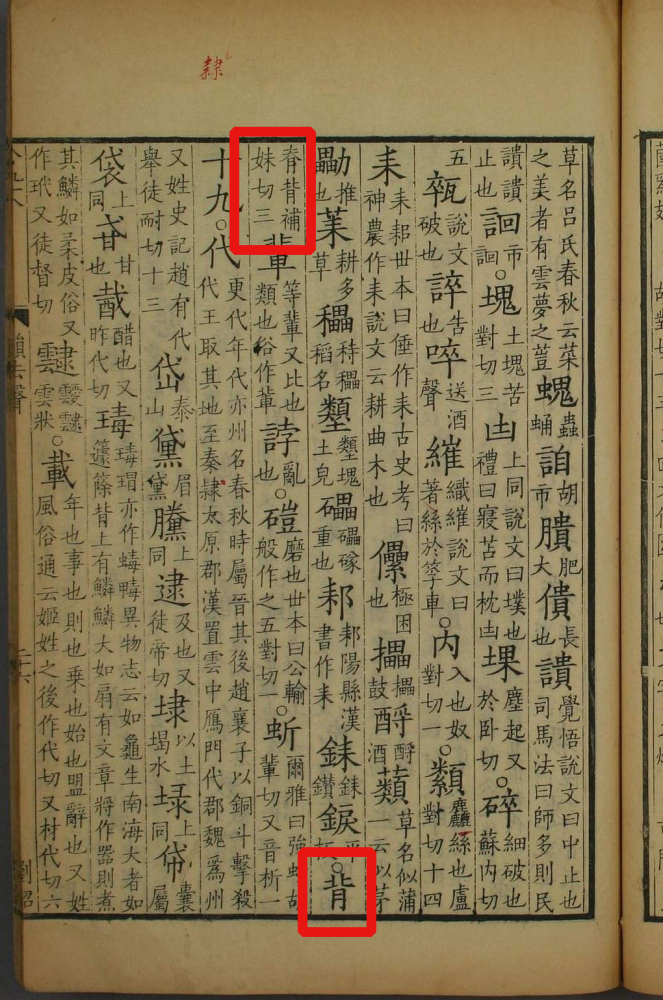 隸
草名呂氏春秋云菜之美者有雲夢之荳螝蟲蛹詯胡市膭肥大僓長也覺悟說文曰中止也司馬法曰師多則民
止也市。塊土塊苦對切三凷上同說文曰墣也禮曰寢苫而枕凷堁塵起又於卧切。碎細破也蘇內切
五說文破也誶告也啐送酒聲繀織繀說文曰著絲於筟車。內入也奴對切一。纇麤絲也盧對切十四
耒耒耜世本曰倕作耒古史考曰神農作耒說文云耕曲木也儽極困也攂攂鼓酹酹酒蘱草名似蒲一云似茅
勵推也茉耕多草穤稻名土塊礧礧硠重也耒耒陽縣漢書作耒銇銇鑽錑。背
脊背補妹切三輩等輩又比也類也俗作軰誖亂也。磑磨也世本曰公輸般作之五對切一。蚚爾雅曰強蚚胡輩切又音析一
十九。代更代年代亦州名春秋時屬晉其後趙襄子以銅斗擊殺代王取其地至秦隸太原郡漢置雲中鴈門代郡魏爲州
又姓史記趙有代舉徒耐切十三岱泰山黛眉黛黱上同逮及也又徒帝切埭以土堨水𡌶上同帒囊屬
袋上同甙甘也酨醋也又昨代切瑇瑇瑁亦作蝳䖪異物志云如龜生南海大者如籧篨背上有鱗鱗大如扇有文章將作器則煮
其鱗如柔皮俗又作玳又徒督切靆靉靆雲狀。載年也事也則也乘也始也盟辭也又姓風俗通云姬姓之後作代切又材代切六